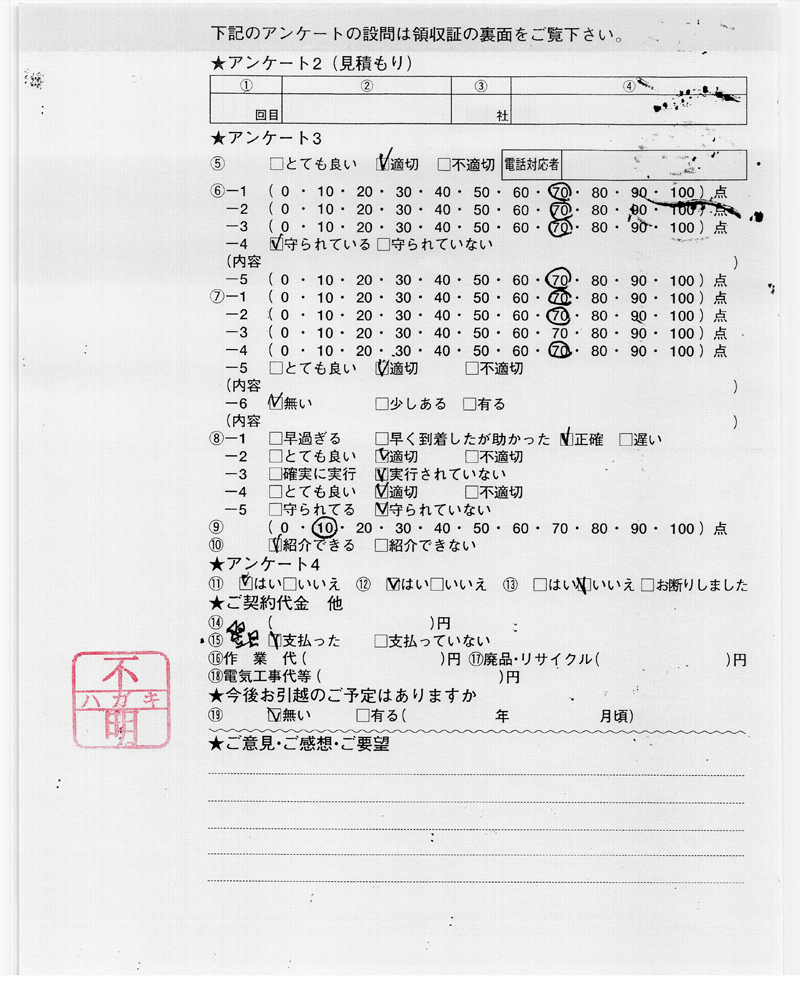 下記のアンケートの設問は領収証の裏面をご覧下さい。
★アンケート2（見積もり）
① ② ③ ④
回目 社
★アンケート3
⑤ □とても良い ☑適切 □不適切 電話対応者
⑥－1 ( 0 ・ 10 ・ 20 ・ 30 ・ 40 ・ 50 ・ 60 ・ 70 ・ 80 ・ 90 ・ 100 ) 点
－2 ( 0 ・ 10 ・ 20 ・ 30 ・ 40 ・ 50 ・ 60 ・ 70 ・ 80 ・ 90 ・ 100 ) 点
－3 ( 0 ・ 10 ・ 20 ・ 30 ・ 40 ・ 50 ・ 60 ・ 70 ・ 80 ・ 90 ・ 100 ) 点
－4 ☑守られている □守られていない
（内容 ）
－5 ( 0 ・ 10 ・ 20 ・ 30 ・ 40 ・ 50 ・ 60 ・ 70 ・ 80 ・ 90 ・ 100 ) 点
⑦－1 ( 0 ・ 10 ・ 20 ・ 30 ・ 40 ・ 50 ・ 60 ・ 70 ・ 80 ・ 90 ・ 100 ) 点
－2 ( 0 ・ 10 ・ 20 ・ 30 ・ 40 ・ 50 ・ 60 ・ 70 ・ 80 ・ 90 ・ 100 ) 点
－3 ( 0 ・ 10 ・ 20 ・ 30 ・ 40 ・ 50 ・ 60 ・ 70 ・ 80 ・ 90 ・ 100 ) 点
－4 ( 0 ・ 10 ・ 20 ・ 30 ・ 40 ・ 50 ・ 60 ・ 70 ・ 80 ・ 90 ・ 100 ) 点
－5 □とても良い ☑適切 □不適切
（内容 ）
－6 ☑無い □少しある □有る
（内容 ）
⑧－1 □早過ぎる □早く到着したが助かった ☑正確 □遅い
－2 □とても良い ☑適切 □不適切
－3 □確実に実行 ☑実行されていない
－4 □とても良い ☑適切 □不適切
－5 □守られてる ☑守られていない
⑨ ( 0 ・ 10 ・ 20 ・ 30 ・ 40 ・ 50 ・ 60 ・ 70 ・ 80 ・ 90 ・ 100 ) 点
⑩ ☑紹介できる □紹介できない
★アンケート4
⑪ ☑はい□いいえ ⑫ ☑はい□いいえ ⑬ □はい☑いいえ □お断りしました
★ご契約代金 他
⑭ ( )円
⑮ ☑支払った □支払っていない
⑯作 業 代( )円 ⑰廃品・リサイクル( )円
⑱電気工事代等( )円
★今後お引越のご予定はありますか
⑲ ☑無い □有る( 年 月頃)
★ご意見・ご感想・ご要望
不
ハガキ
明